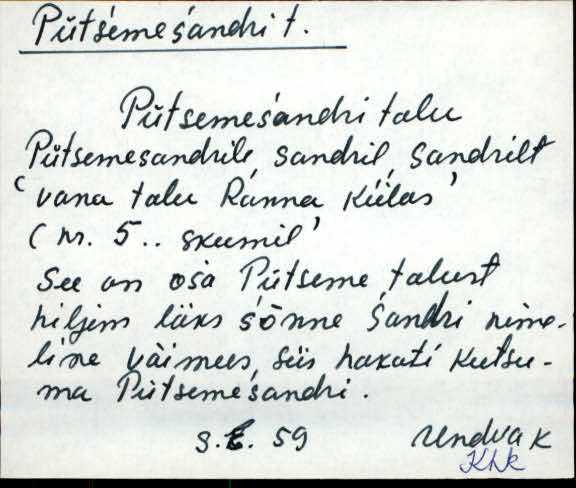 Pütśemeśandri t.
Pütsemeśandri talu
Pütsemesandrile, sandril, sandrilt
‘vana talu Ranna külas’
(nr. 5.. skumil’
See on ośa Pütseme talust
hiljem läks śõnne Śandri nime-
line väimees, siis hakati kutsu-
ma Pütsemeśandri.
S.E. 59 Undva K
KNk